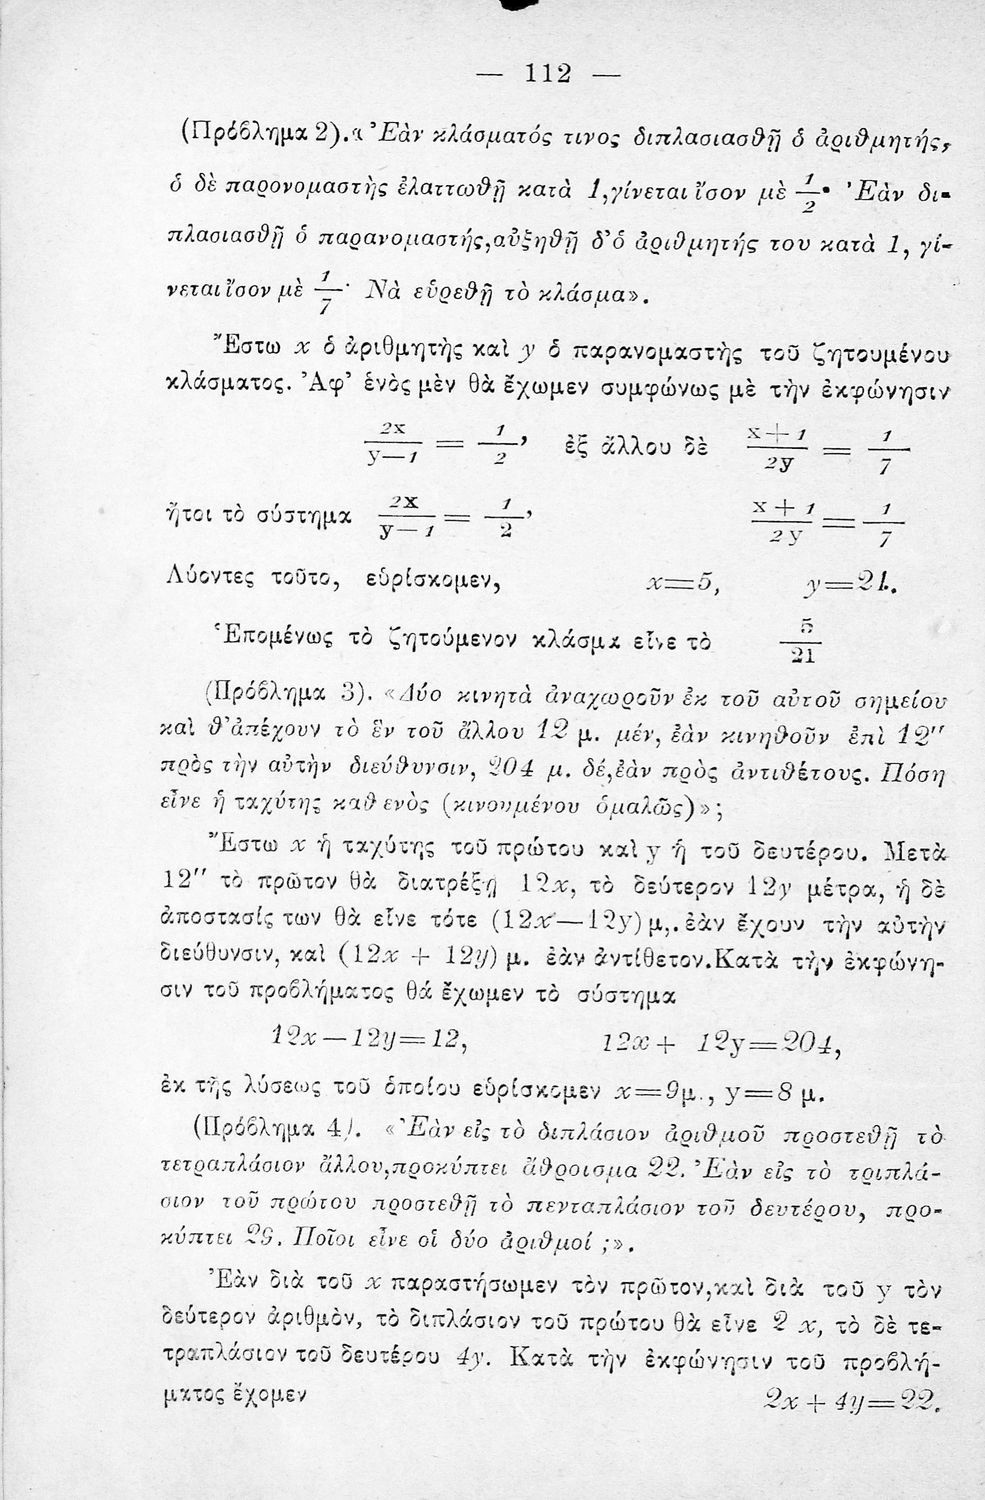 — 112 —
(Πρόβλημα 2).« Ἐὰν κλάσματός τινος διπλασιασθῇ ὁ ἀριθμητής,
ὁ δὲ παρονομαστὴς ἐλαττωθῇ κατὰ 1,γίνεται ἴσον μὲ 1/2. Ἐὰν δι-
πλασιασθῇ ὁ παρανομαστής,αὐξηθῇ δ’ὁ ἀριθμητής του κατὰ 1, γί-
νεται ἴσον μὲ 1/7. Νὰ εὑρεθῇ τὸ κλάσμα».
Ἔστω x ὁ ἀριθμητὴς καὶ y ὁ παρανομαστὴς τοῦ ζητουμένου
κλάσματος. Ἀφ’ ἑνὸς μὲν θὰ ἔχωμεν συμφώνως μὲ τὴν ἐκφώνησιν
2x/y—1 = 1/2, ἐξ ἄλλου δὲ x+1/2y = 1/7
ἤτοι τὸ σύστημα 2x/y—1 = 1/2, x+1/2y = 1/7
Λύοντες τοῦτο, εὑρίσκομεν, x=5, y=21.
Ἑπομένως τὸ ζητούμενον κλάσμα εἶνε τὸ 5/21
(Πρόβλημα 3). «Δύο κινητὰ ἀναχωροῦν ἐκ τοῦ αὐτοῦ σημείου
καὶ θ’ἀπέχουν τὸ ἓν τοῦ ἄλλου 12 μ. μέν, ἐὰν κινηθοῦν ἐπὶ 12″
πρὸς τὴν αὐτὴν διεύθυνσιν, 204 μ. δέ,ἐὰν πρὸς ἀντιθέτους. Πόση
εἶνε ἡ ταχύτης καθενὸς (κινουμένου ὁμαλῶς)»;
Ἔστω x ἡ ταχύτης τοῦ πρώτου καὶ y ἡ τοῦ δευτέρου. Μετὰ
12″ τὸ πρῶτον θὰ διατρέξῃ 12x, τὸ δεύτερον 12y μέτρα, ἡ δὲ
ἀποστασίς των θὰ εἶνε τότε (12x—12y) μ,. ἐὰν ἔχουν τὴν αὐτὴν
διεύθυνσιν, καὶ (12x + 12y) μ. ἐὰν ἀντίθετον.Κατὰ τὴν ἐκφώνη-
σιν τοῦ προβλήματος θά ἔχωμεν τὸ σύστημα
12x—12y=12, 12x+ 12y=204,
ἐκ τῆς λύσεως τοῦ ὁποίου εὑρίσκομεν x=9μ., y=8 μ.
(Πρόβλημα 4). «Ἐὰν εἰς τὸ διπλάσιον ἀριθμοῦ προστεθῇ τὸ
τετραπλάσιον ἄλλου,προκύπτει ἄθροισμα 22. Ἐὰν εἰς τὸ τριπλά-
σιον τοῦ πρώτου προστεθῇ τὸ πενταπλάσιον τοῦ δευτέρου, προ-
κύπτει 29. Ποῖοι εἶνε οἱ δύο ἀριθμοί ;».
Ἐὰν διὰ τοῦ x παραστήσωμεν τὸν πρῶτον,καὶ διὰ τοῦ y τὸν
δεύτερον ἀριθμὸν, τὸ διπλάσιον τοῦ πρώτου θὰ εἶνε 2 x, τὸ δὲ τε-
τραπλάσιον τοῦ δευτέρου 4y. Κατὰ τὴν ἐκφώνησιν τοῦ προβλή-
ματος ἔχομεν 2x + 4y=22.